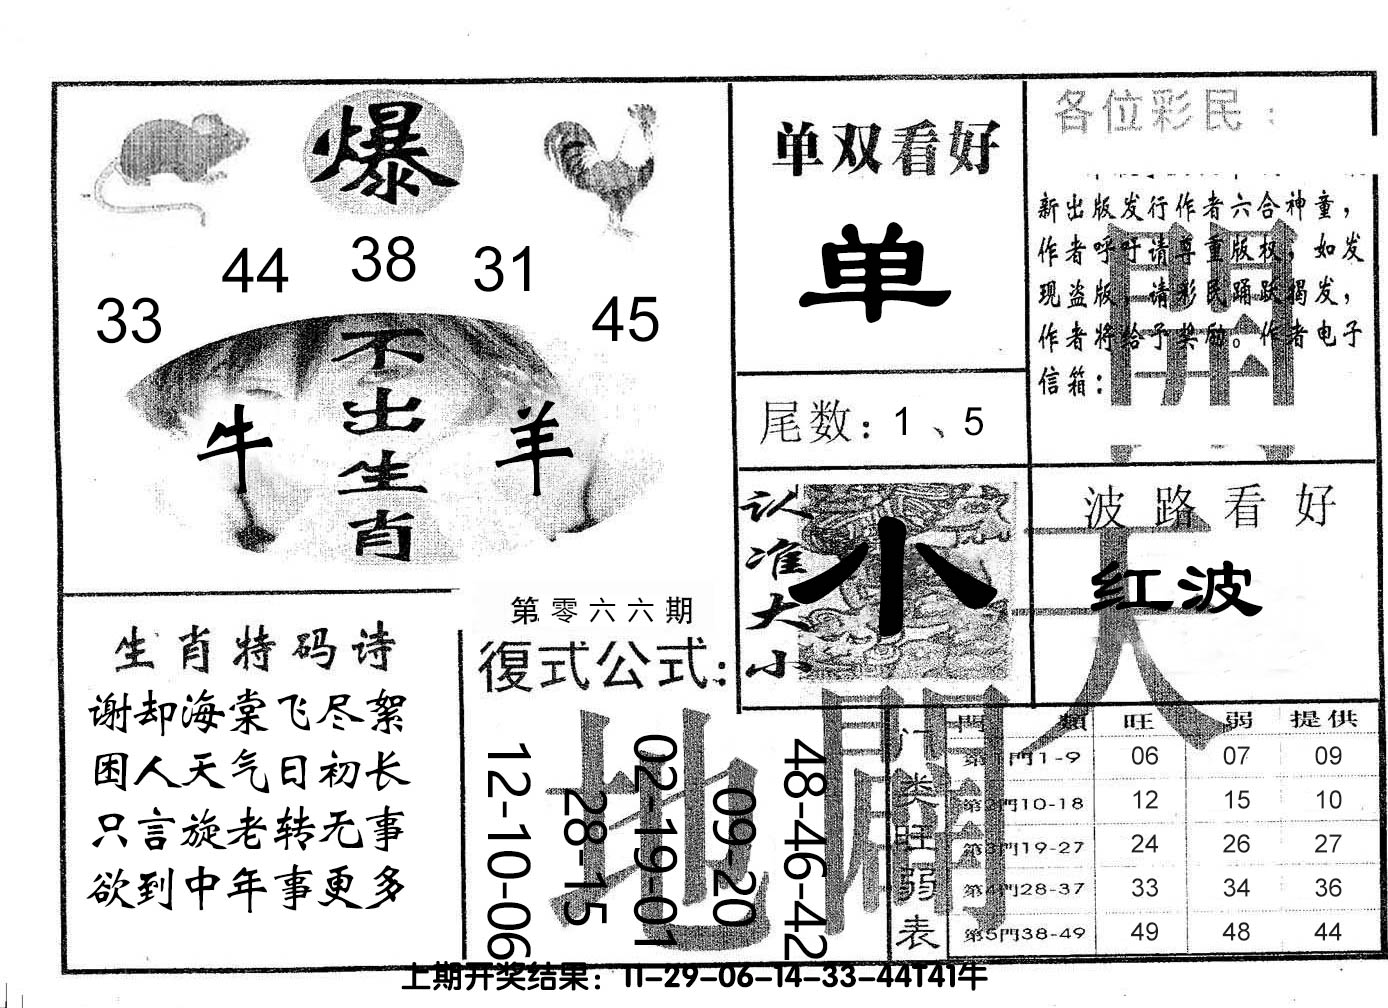 爆
33 44 38 31 45
不出生肖
牛 羊
单双看好
单
尾数：1、5
各位彩民：
新出版发行作者六合神童，
作者呼吁请尊重版权，如发
现盗版，请彩民踊跃揭发，
作者将给予奖励。作者电子
信箱：
認准大小
小
波路看好
红波
生肖特码诗
谢却海棠飞尽絮
困人天气日初长
只言旋老转无事
欲到中年事更多
第零六六期
復式公式：
12-10-06
28-15
02-19-01
09-20
48-46-42
開
天
地
門类旺弱表
門類 旺 弱 提供
第1門1-9 06 07 09
第2門10-18 12 15 10
第3門19-27 24 26 27
第4門28-37 33 34 36
第5門38-49 49 48 44
上期开奖结果：11-29-06-14-33-44T41牛